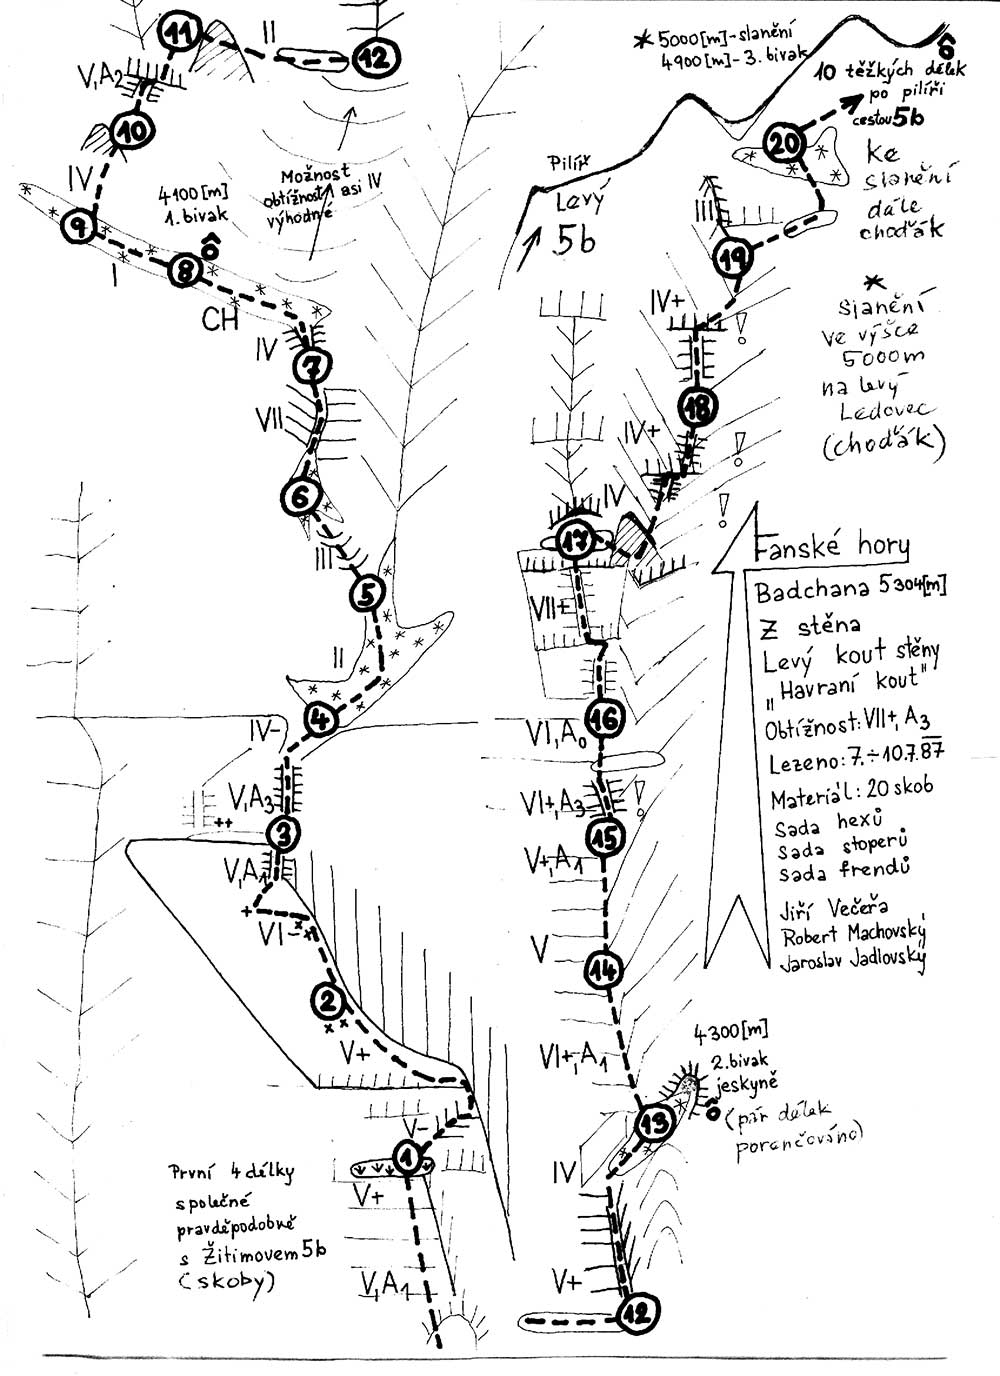 11
II
12
V,A2
10
IV
9
I
4100[m]
1. bivak
8
CH
Možnost
obtížnost asi IV
výhodné
IV
7
VII
6
III
5
II
4
IV-
V,A3
++
3
V,A1
+
VI-
xx
2
xx
V+
V-
1
V+
V,A1
První 4 délky
společné
pravděpodobně
s Žitimovem 5b
(skoby)
* 5000[m]-slanění
4900[m]-3. bivak
10 těžkých délek
po pilíři
cestou 5b
20
ke
slanění
dále
choďák
Pilíř
Levý
5b
III
19
IV+
!
18
IV+
!
IV
!
17
VII+
16
VI,A0
VI+,A3
!
15
V+,A1
V
14
VI+,A1
4300[m]
2. bivak
jeskyně
(pár délek
porančováno)
13
IV
V+
12
*
Slanění
ve výšce
5000m
na levý
Ledovec
(choďák)
Fanské hory
Badchana 5304[m]
Z stěna
Levý kout stěny
"Havraní kout"
Obtížnost: VII+, A3
Lezeno: 7.÷10.7.87
Materiál: 20 skob
Sada hexů
Sada stoperů
Sada frendů
Jiří Večeřa
Robert Machovský
Jaroslav Jadlovský